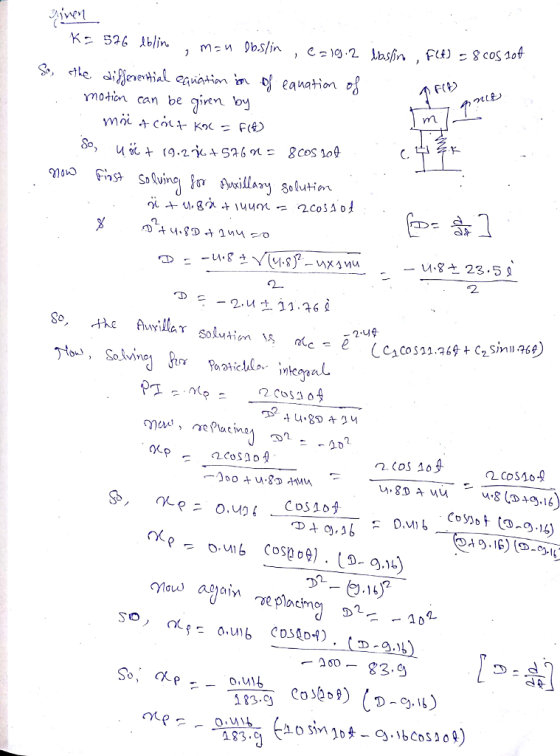 given
K = 576 lb/in , m = 4 lbs/in , c = 19.2 lbs/in , F(t) = 8 cos 10t
So, the differential equation in of equation of
motion can be given by
mẍ + cẋ + Kx = F(t)
So, 4ẍ + 19.2ẋ + 576x = 8cos 10t
F(t)
x(t)
m
C
K
now first solving for Auxillary solution
ẍ + 4.8ẋ + 144x = 2cos10t
& D² + 4.8D + 144 = 0 [D = d/dt]
D = (-4.8 ± √((4.8)² - 4×144))/2 = (-4.8 ± 23.5i)/2
D = -2.4 ± 11.76i
So, the Auxillar solution is x_c = e^(-2.4t) (C₁cos11.76t + C₂sin11.76t)
Now, Solving for Particular integral
PI = x_p = 2cos10t/(D² + 4.8D + 14)
now, replacing D² = -10²
x_p = 2cos10t/(-100 + 4.8D + 144) = 2cos10t/(4.8D + 44) = 2cos10t/(4.8(D+9.16))
So, x_p = 0.416 cos10t/(D+9.16) = 0.416 cos10t (D-9.16)/((D+9.16)(D-9.16
x_p = 0.416 cos(10t).(D-9.16)/(D² - (9.16)²)
now again replacing D² = -10²
SO, x_p = 0.416 cos(10t).(D-9.16)/(-100 - 83.9)
So, x_p = - 0.416/183.9 cos(10t) (D-9.16) [D = d/dt]
x_p = - 0.416/183.9 (-10sin10t - 9.16cos10t)